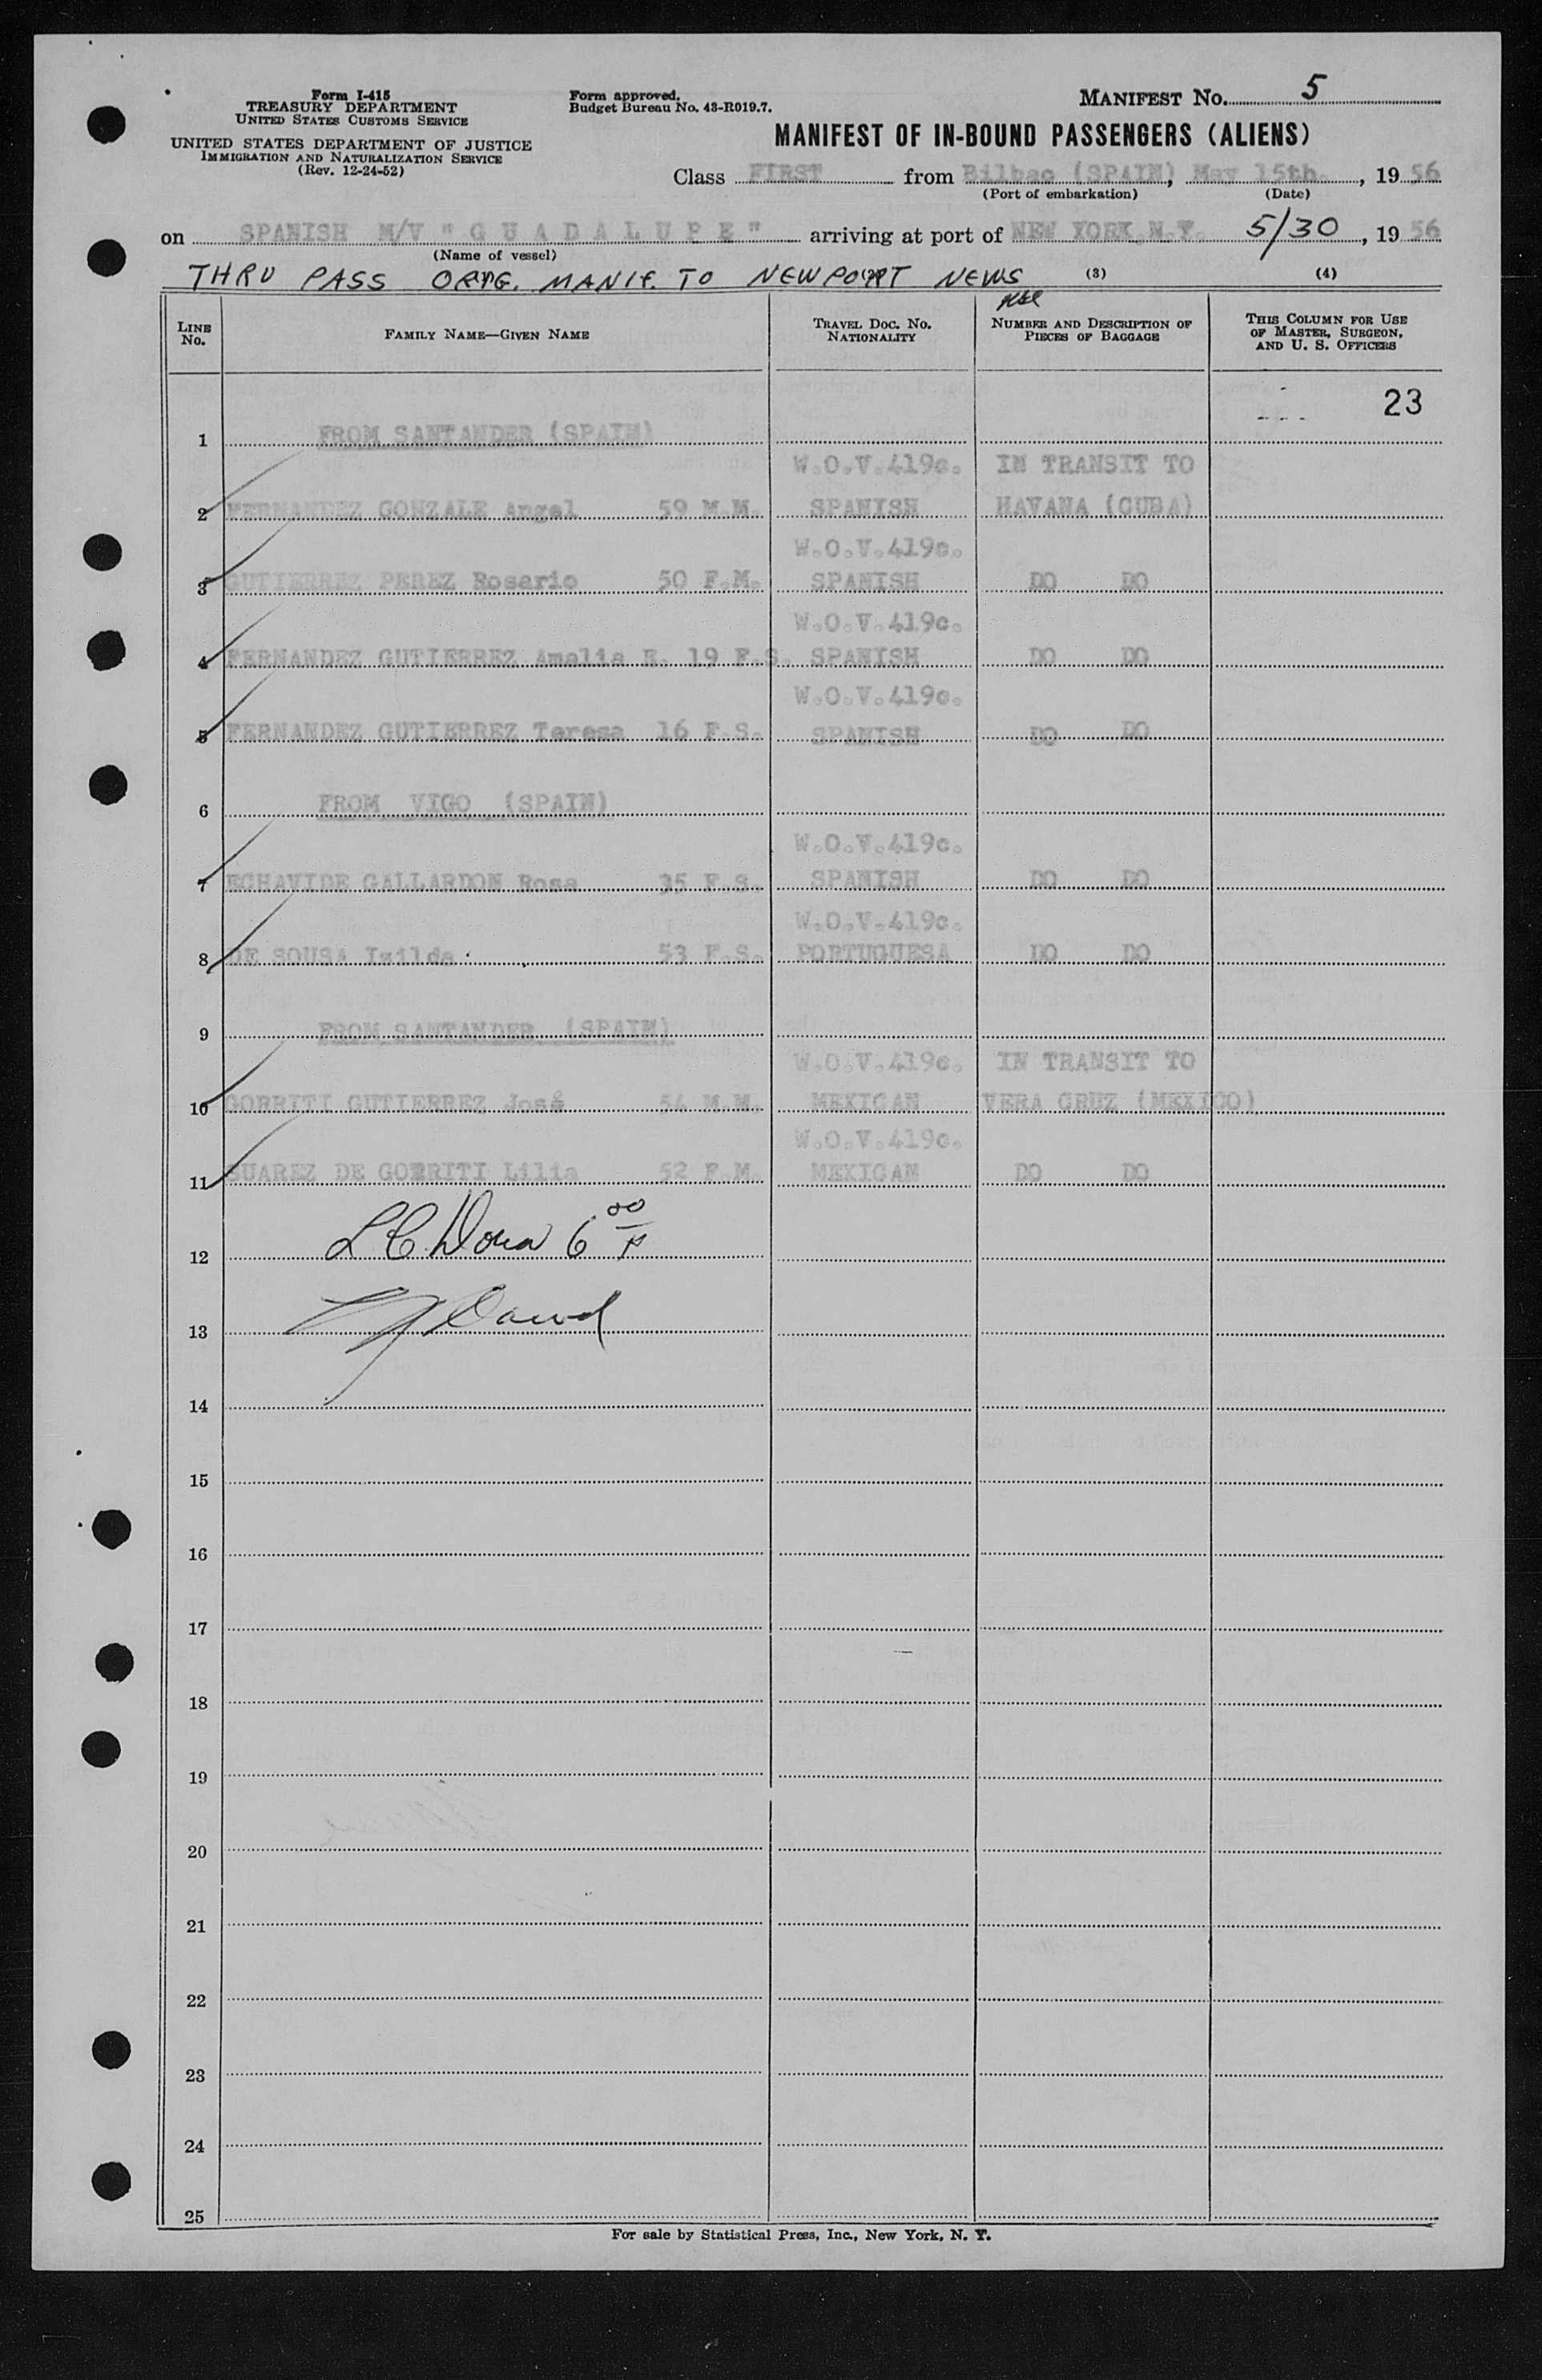 Form I-415
TREASURY DEPARTMENT
UNITED STATES CUSTOMS SERVICE
UNITED STATES DEPARTMENT OF JUSTICE
IMMIGRATION AND NATURALIZATION SERVICE
(Rev. 12-24-52)
Form approved.
Budget Bureau No. 43-R019.7.
MANIFEST No. 5
MANIFEST OF IN-BOUND PASSENGERS (ALIENS)
Class FIRST from Bilbao (SPAIN), May 15th., 19 56
(Port of embarkation) (Date)
on SPANISH M/V "GUADALUPE" arriving at port of NEW YORK, N.Y. 5/30, 19 56
(Name of vessel)
THRU PASS ORIG. MANIF. TO NEWPORT NEWS (3) (4)
LINE No. FAMILY NAME—GIVEN NAME TRAVEL DOC. No. NATIONALITY NUMBER AND DESCRIPTION OF PIECES OF BAGGAGE THIS COLUMN FOR USE OF MASTER, SURGEON, AND U. S. OFFICERS
23
1 FROM SANTANDER (SPAIN)
W.O.V.419c. IN TRANSIT TO
2 FERNANDEZ GONZALE Angel 59 M.M. SPANISH HAVANA (CUBA)
W.O.V.419c.
3 GUTIERREZ PEREZ Rosario 50 F.M. SPANISH DO DO
W.O.V.419c.
4 FERNANDEZ GUTIERREZ Amalia R. 19 F.S. SPANISH DO DO
W.O.V.419c.
5 FERNANDEZ GUTIERREZ Teresa 16 F.S. SPANISH DO DO
6 FROM VIGO (SPAIN)
W.O.V.419c.
7 ECHAVIDE GALLARDON Rosa 35 F.S. SPANISH DO DO
W.O.V.419c.
8 DE SOUSA Izilda 53 F.S. PORTUGUESA DO DO
9 FROM SANTANDER (SPAIN)
W.O.V.419c. IN TRANSIT TO
10 GORRITI GUTIERREZ José 54 M.M. MEXICAN VERA CRUZ (MEXICO)
W.O.V.419c.
11 SUAREZ DE GORRITI Lilia 52 F.M. MEXICAN DO DO
12
13
14
15
16
17
18
19
20
21
22
23
24
25
For sale by Statistical Press, Inc., New York, N. Y.